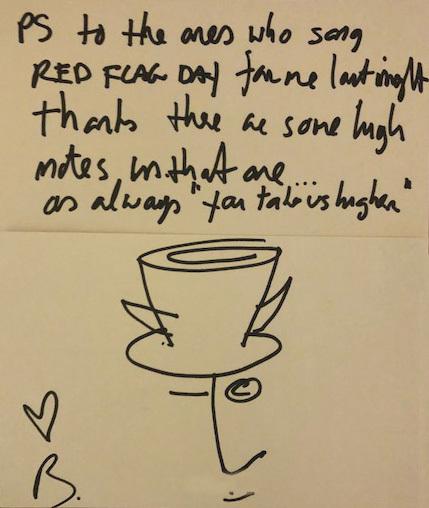 PS to the ones who sang
RED FLAG DAY for me last night
thanks there are some high
notes in that one...
as always "you take us higher"
B.